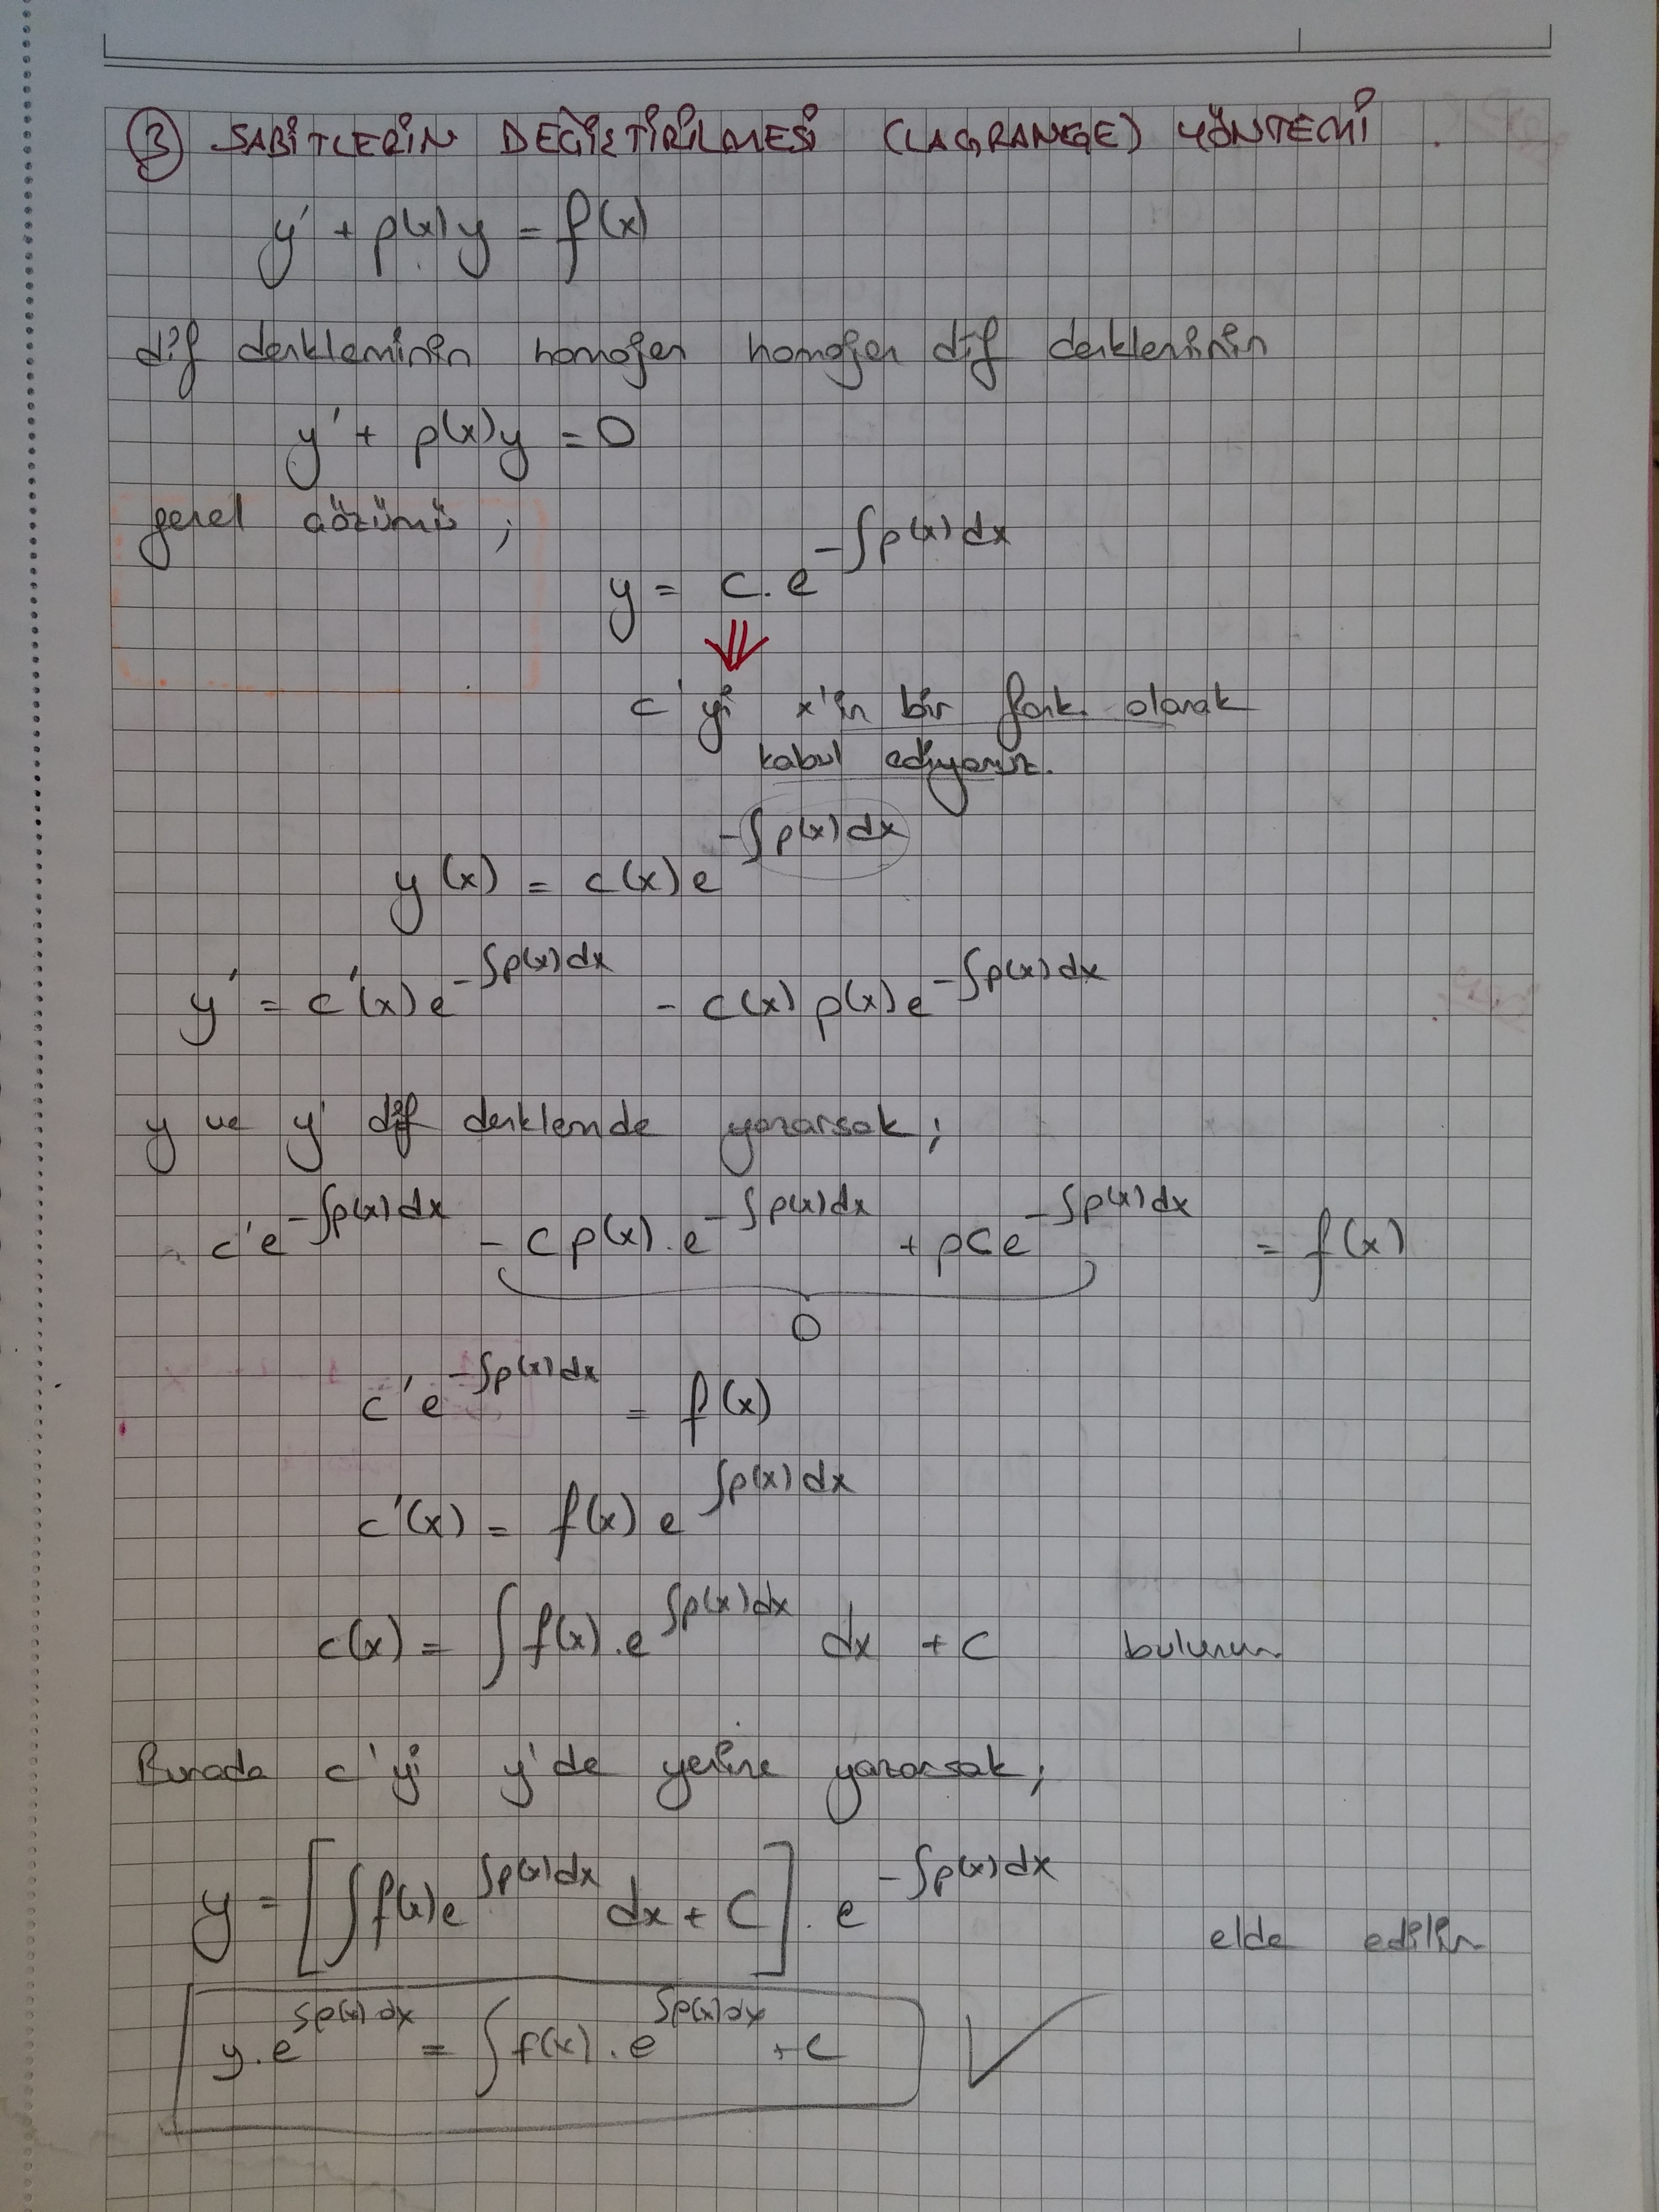 ③ SABİTLERİN DEĞİŞTİRİLMESİ (LAGRANGE) YÖNTEMİ
y' + p(x)y = f(x)
dif denkleminin homojen homojen dif denkleminin
y' + p(x)y = 0
genel çözümü ;
y = c. e^{-∫p(x)dx}
c'yi x'in bir fonk. olarak
kabul ediyoruz.
y(x) = c(x)e^{-∫p(x)dx}
y' = c'(x)e^{-∫p(x)dx} - c(x)p(x)e^{-∫p(x)dx}
y ve y' dif denklemde yazarsak;
c'e^{-∫p(x)dx} - cp(x).e^{-∫p(x)dx} + pce^{-∫p(x)dx} = f(x)
0
c'e^{-∫p(x)dx} = f(x)
c'(x) = f(x)e^{∫p(x)dx}
c(x) = ∫f(x).e^{∫p(x)dx} dx + c bulunur
Burada c'yi y'de yerine yazarsak;
y = [∫f(x)e^{∫p(x)dx} dx + C]. e^{-∫p(x)dx} elde edilir
y.e^{∫p(x)dx} = ∫f(x).e^{∫p(x)dx} + c ✓